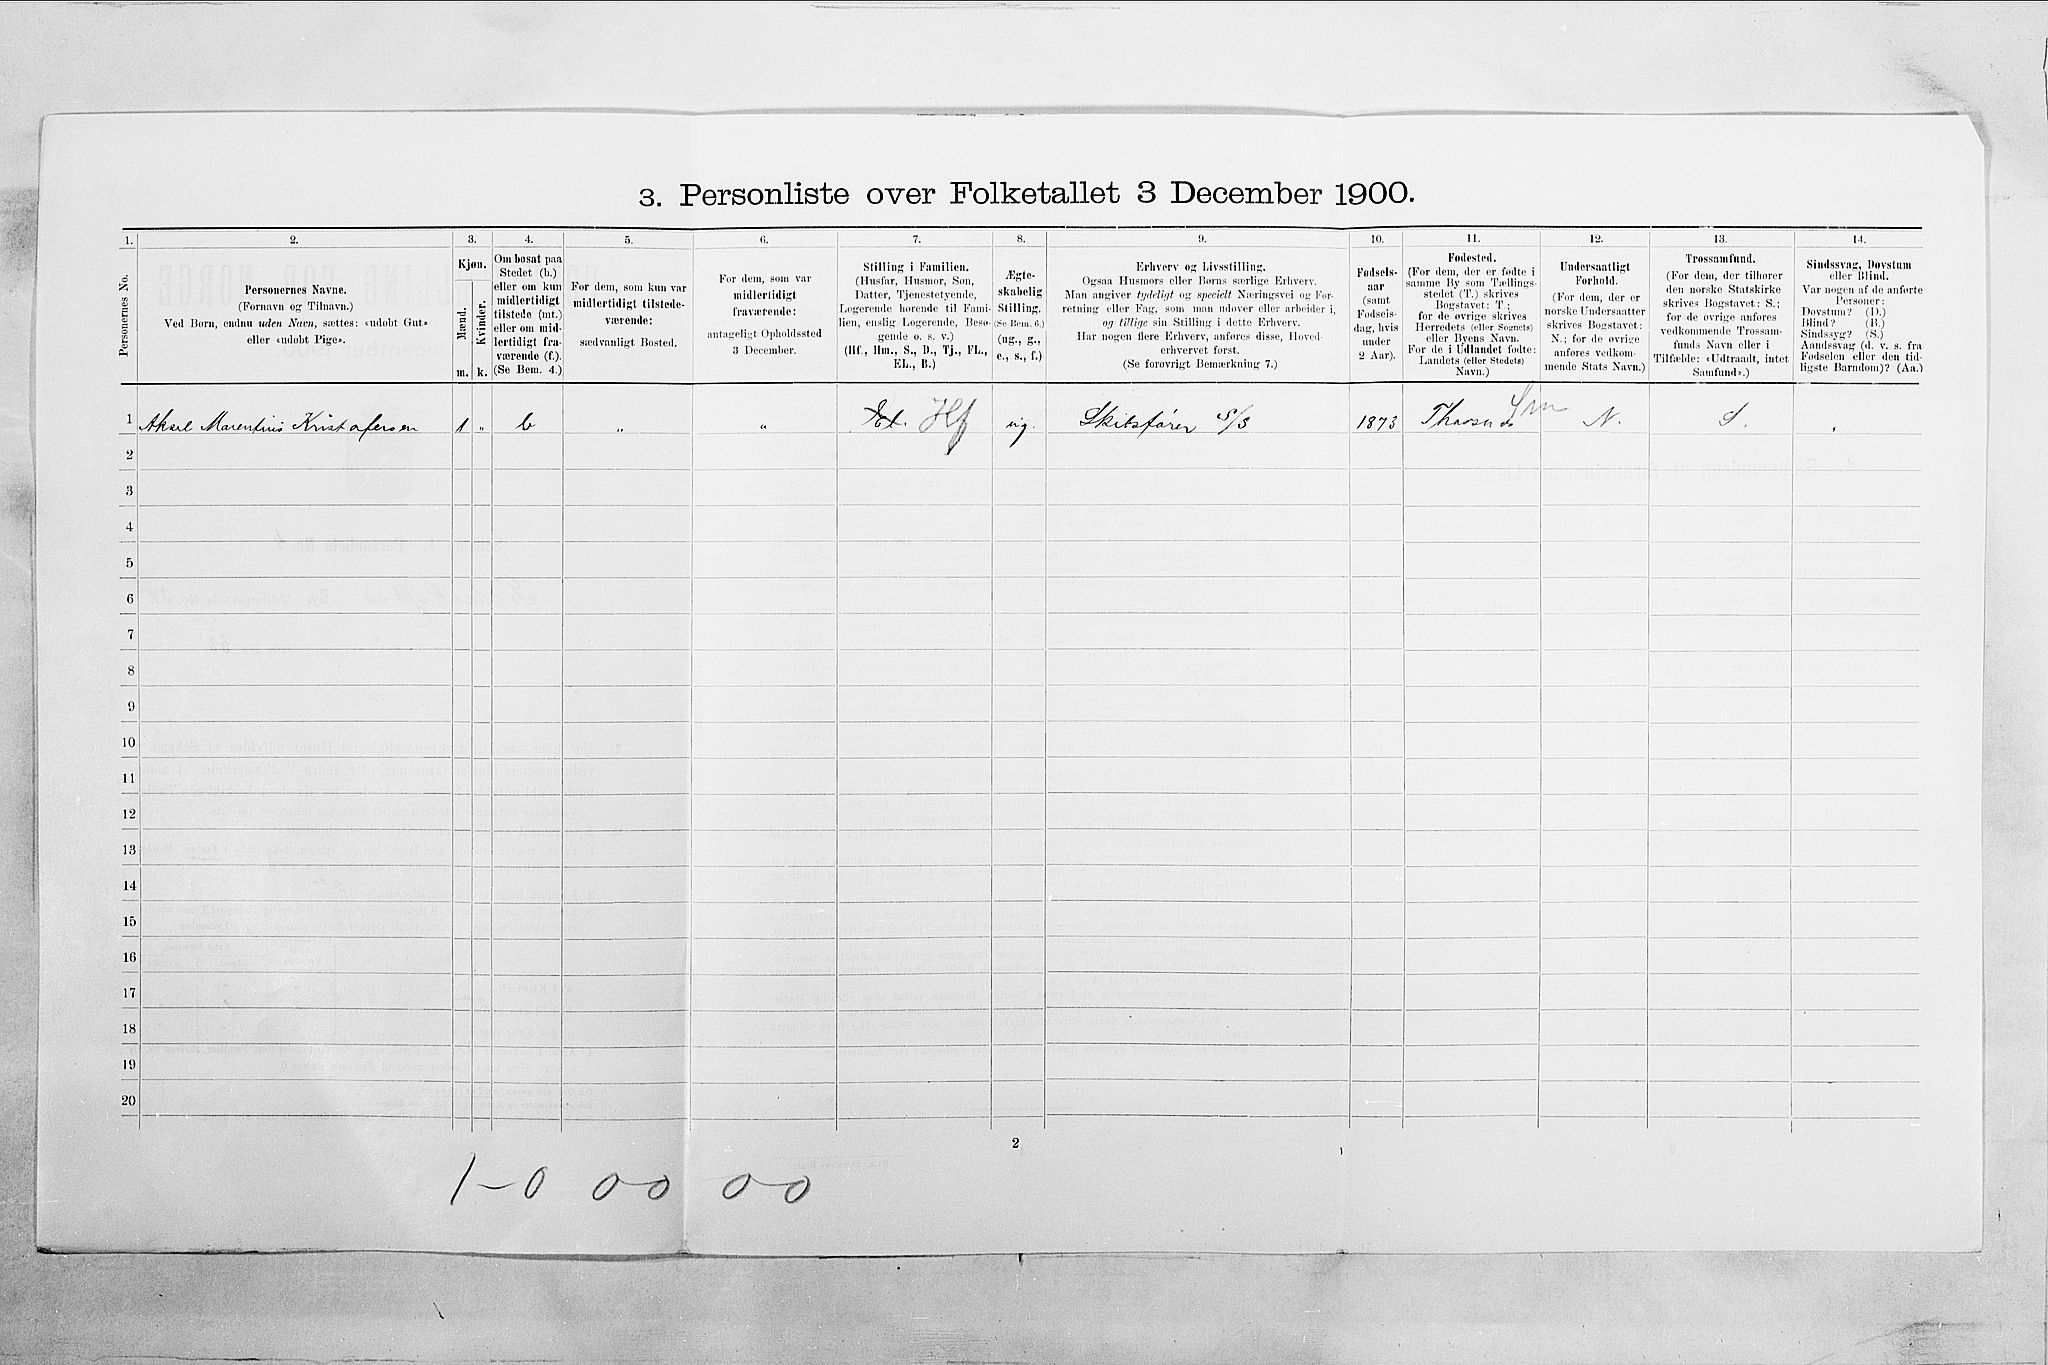 3. Personliste over Folketallet 3 December 1900.
1. 2. 3. 4. 5. 6. 7. 8. 9. 10. 11. 12. 13. 14.
Personernes No.
Personernes Navne.
(Fornavn og Tilnavn.)
Ved Børn, endnu uden Navn, sættes: «udøbt Gut»
eller «udøbt Pige».
Kjøn.
Mænd.
Kvinder.
m. k.
Om bosat paa
Stedet (b.)
eller om kun
midlertidigt
tilstede (mt.)
eller om mid-
lertidigt fra-
værende (f.).
(Se Bem. 4.)
For dem, som kun var
midlertidigt tilstede-
værende:
sædvanligt Bosted.
For dem, som var
midlertidigt
fraværende:
antageligt Opholdssted
3 December.
Stilling i Familien.
(Husfar, Husmor, Søn,
Datter, Tjenestetyende,
Logerende hørende til Fami-
lien, enslig Logerende, Besø-
gende o. s. v.)
(Hf., Hm., S., D., Tj., FL.,
EL., B.)
Ægte-
skabelig
Stilling.
(Se Bem. 6.)
(ug., g.,
e., s., f.)
Erhverv og Livsstilling.
Ogsaa Husmors eller Børns særlige Erhverv.
Man angiver tydeligt og specielt Næringsvei og For-
retning eller Fag, som man udøver eller arbeider i,
og tillige sin Stilling i dette Erhverv.
Har nogen flere Erhverv, anføres disse, Hoved-
erhvervet først.
(Se forøvrigt Bemærkning 7.)
Fødsels-
aar
(samt
Fødsels-
dag, hvis
under
2 Aar).
Fødested.
(For dem, der er fødte i
samme By som Tællings-
stedet (T.) skrives
Bogstavet: T.;
for de øvrige skrives
Herredets (eller Sognets)
eller Byens Navn.
For de i Udlandet fødte:
Landets (eller Stedets)
Navn.)
Undersaatligt
Forhold.
(For dem, der er
norske Undersaatter
skrives Bogstavet:
N.; for de øvrige
anføres vedkom-
mende Stats Navn.)
Trossamfund.
(For dem, der tilhører
den norske Statskirke
skrives Bogstavet: S.;
for de øvrige anføres
vedkommende Trossam-
funds Navn eller i
Tilfælde: «Udtraadt, intet
Samfund».)
Sindssvag, Døvstum
eller Blind.
Var nogen af de anførte
Personer:
Døvstum? (D.)
Blind? (B.)
Sindssyg? (S.)
Aandssvag (d. v. s. fra
Fødselen eller den tid-
ligste Barndom)? (Aa.)
1 Aksel Marentius Kristofersen 1 „ b „ „ El. Hf ug. Skibsfører S/S 1873 N. S.
2
3
4
5
6
7
8
9
10
11
12
13
14
15
16
17
18
19
20
2
1-0 0-0 0-0